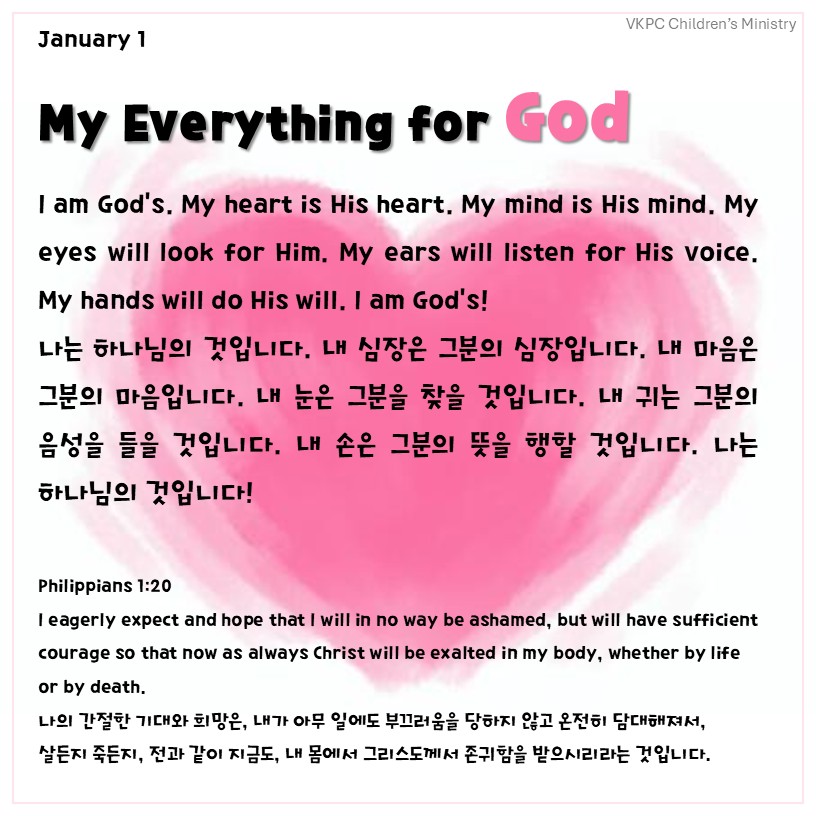 VKPC Children's Ministry
January 1
My Everything for God
I am God's. My heart is His heart. My mind is His mind. My
eyes will look for Him. My ears will listen for His voice.
My hands will do His will. I am God's!
나는 하나님의 것입니다. 내 심장은 그분의 심장입니다. 내 마음은
그분의 마음입니다. 내 눈은 그분을 찾을 것입니다. 내 귀는 그분의
음성을 들을 것입니다. 내 손은 그분의 뜻을 행할 것입니다. 나는
하나님의 것입니다!
Philippians 1:20
I eagerly expect and hope that I will in no way be ashamed, but will have sufficient
courage so that now as always Christ will be exalted in my body, whether by life
or by death.
나의 간절한 기대와 희망은, 내가 아무 일에도 부끄러움을 당하지 않고 온전히 담대해져서,
살든지 죽든지, 전과 같이 지금도, 내 몸에서 그리스도께서 존귀함을 받으시리라는 것입니다.